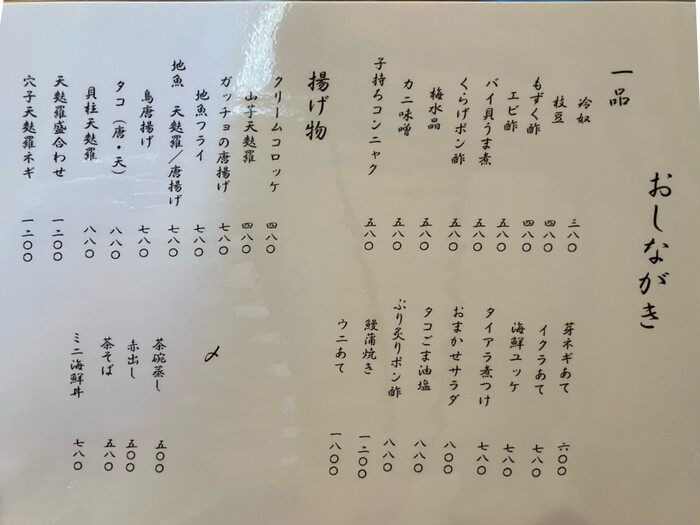 おしながき
一品
冷奴 三八〇
枝豆 四八〇
もずく酢 四八〇
エビ酢 五八〇
バイ貝うま煮 五八〇
くらげポン酢 五八〇
梅水晶 五八〇
カニ味噌 五八〇
子持ちコンニャク 五八〇
芽ネギあて 六〇〇
イクラあて 七八〇
海鮮ユッケ 七八〇
タイアラ煮つけ 七八〇
おまかせサラダ 八〇〇
タコごま油塩 八八〇
ぶり炙りポン酢 八八〇
鰻蒲焼き 一二〇〇
ウニあて 一八〇〇
揚げ物
クリームコロッケ 四八〇
山芋天麩羅 四八〇
ガッチョの唐揚げ 七八〇
地魚フライ 七八〇
地魚 天麩羅/唐揚げ 七八〇
鳥唐揚げ 七八〇
タコ（唐・天） 八八〇
貝柱天麩羅 八八〇
天麩羅盛合わせ 一二〇〇
穴子天麩羅ネギ 一二〇〇
〆
茶碗蒸し 五〇〇
赤出し 五〇〇
茶そば 五八〇
ミニ海鮮丼 七八〇